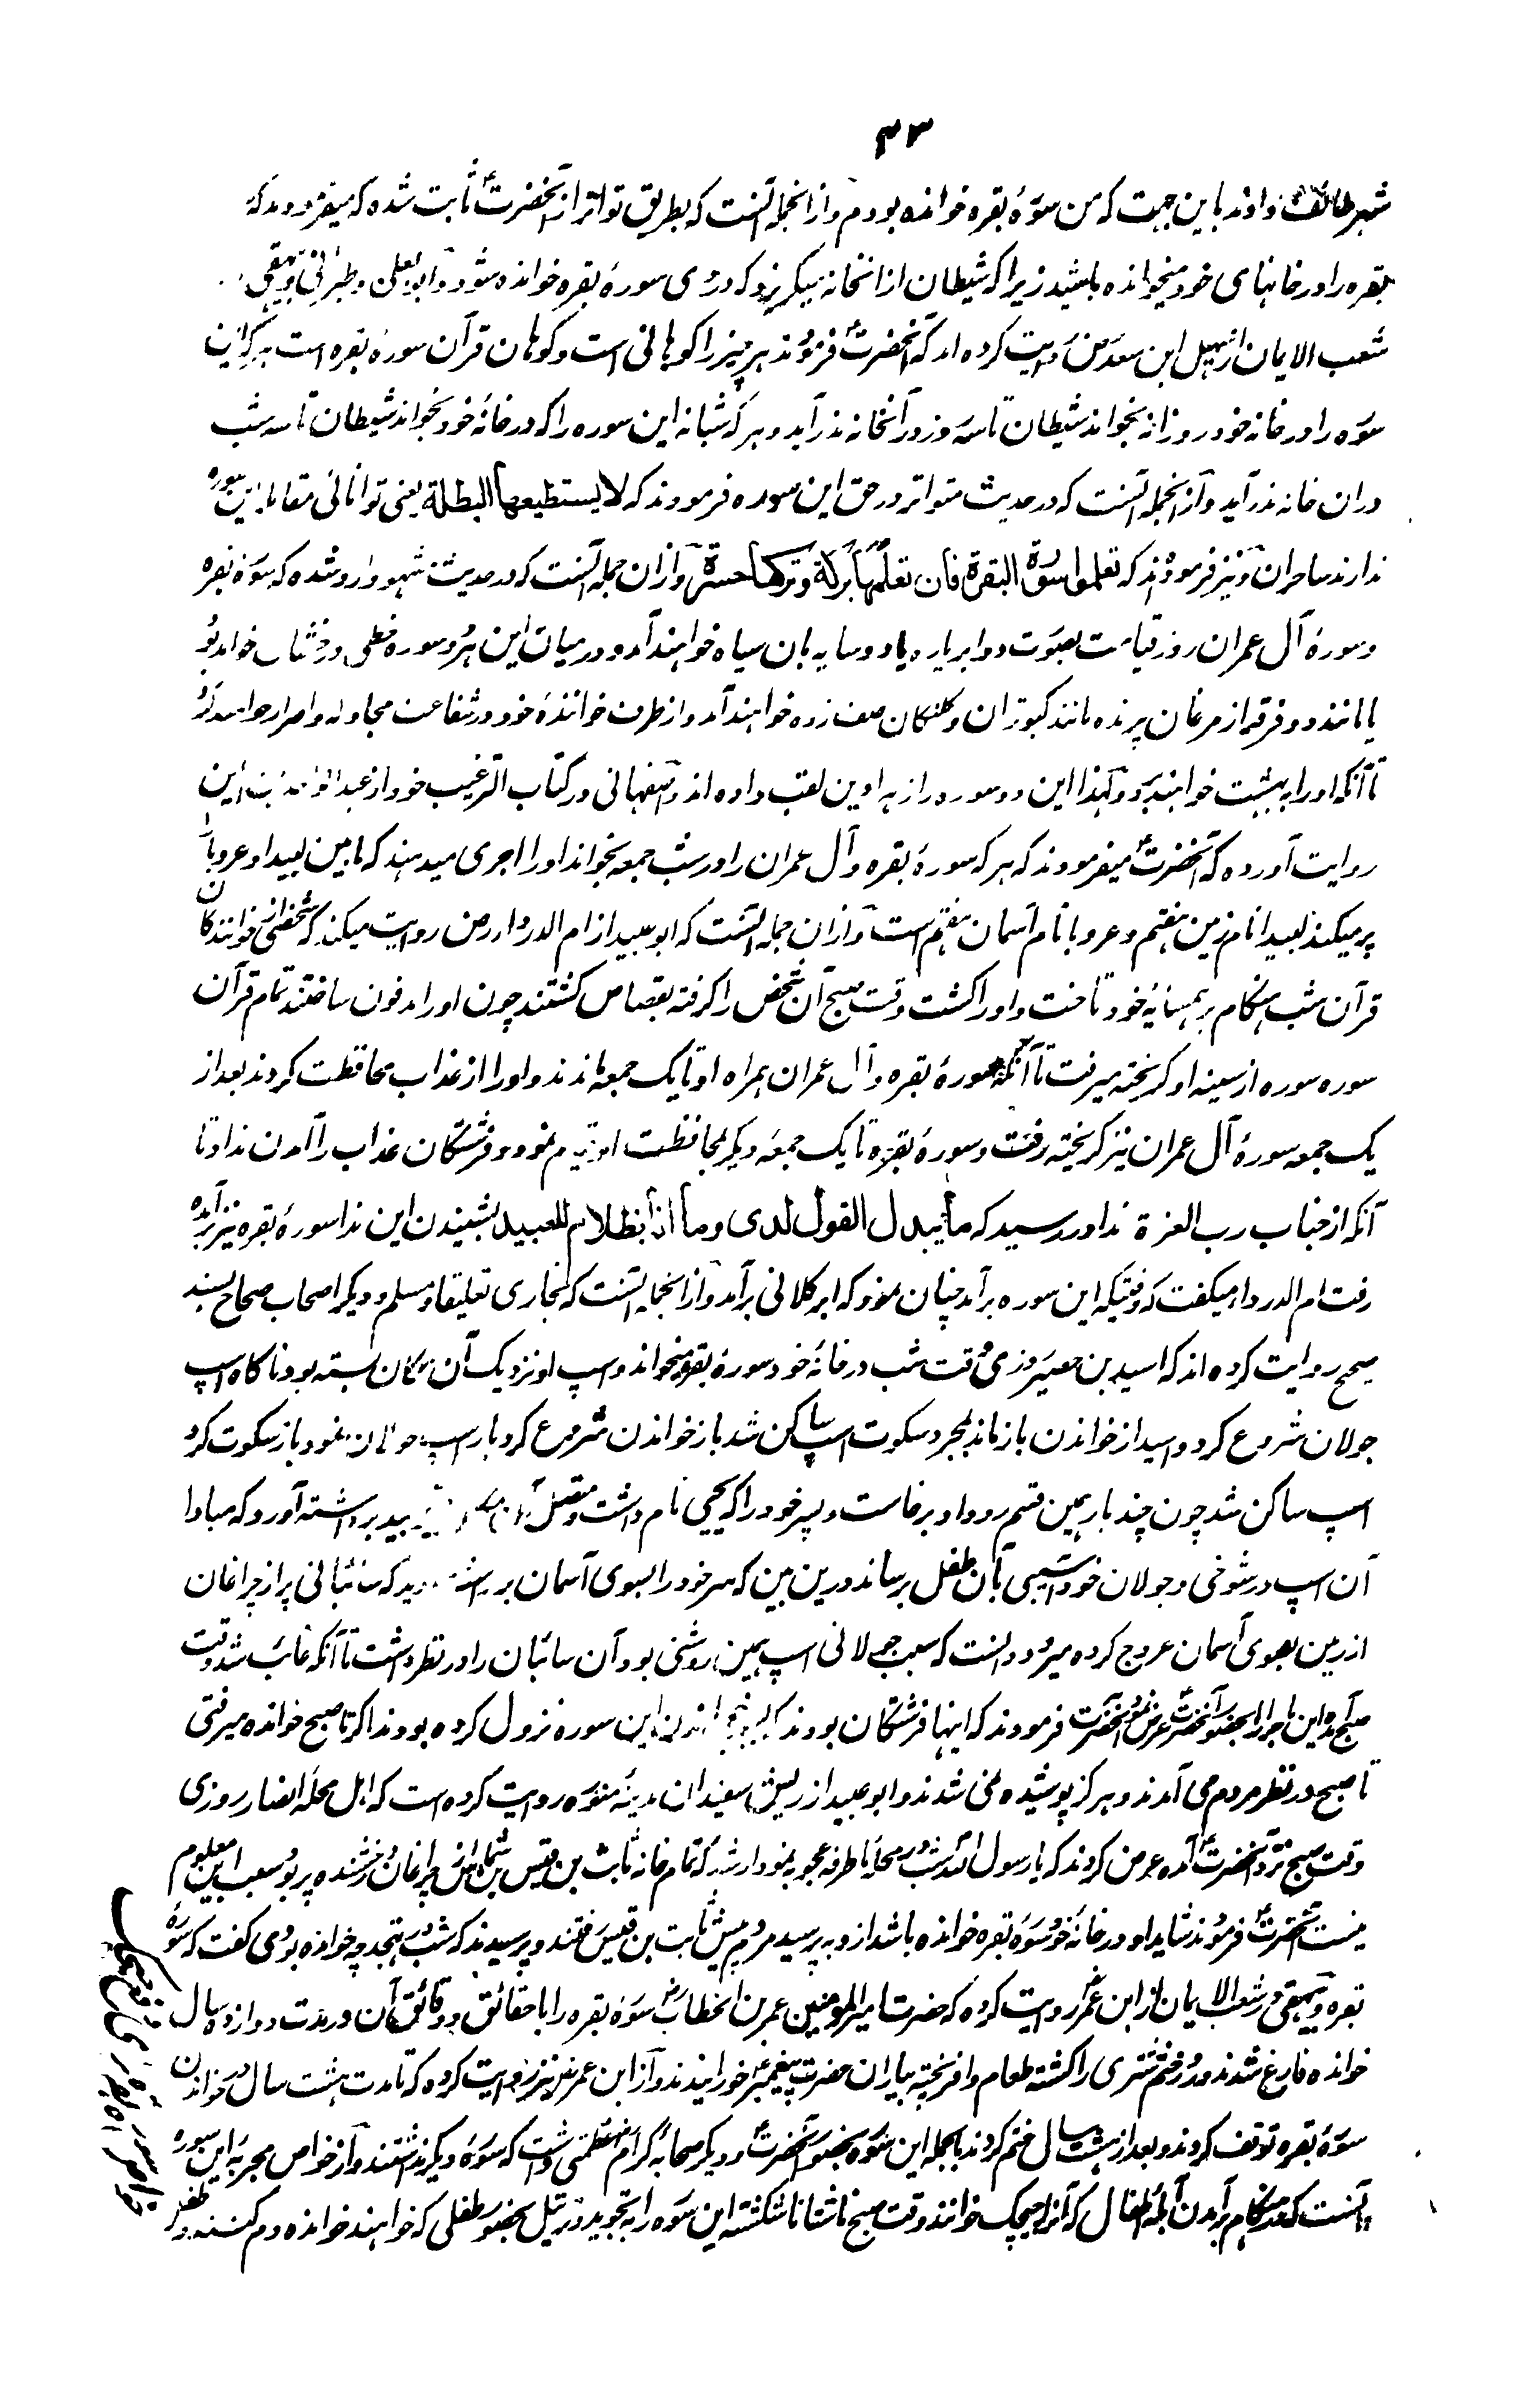 ۴۳
شهر طائف دادند باین جهت که من سورهٔ بقره خوانده بودم و از انجمله آنست که بطریق تواتر از آنحضرت ثابت شده که میفرمودند که
بقره را در خانهای خود میخوانده باشید زیرا که شیطان از انخانه میگریزد که در وی سورهٔ بقره خوانده شود و ابو یعلی و طبرانی و بیهقی
شعب الایمان از سهل ابن سعد رض روایت کرده اند که آنحضرت فرمودند هر چیز را کوهانی است و کوهان قرآن سورهٔ بقره است هر که این
سوره را در خانه خود روزانه بخواند شیطان تا سه روز در آنخانه ندرآید و هر که شبانه این سوره را که در خانهٔ خود بخواند شیطان تا سه شب
دران خانه ندرآید و از انجمله آنست که در حدیث متواتر در حق این سوره فرمودند که لا یستطیعها البطلة یعنی توانائی مقابلهٔ این سوره
ندارند ساحران و نیز فرمودند که تعلموا سورة البقرة فان تعلمها برکة و ترکها حسرة و ازان جمله آنست که در حدیث مشهور وارد شده که سورهٔ بقره
و سورهٔ آل عمران روز قیامت بصورت دو ابر پاره یا دو سایه بان سیاه خواهند آمد و درمیان این هر دو سوره خطی درخشان خواهد بود
یا مانند دو فرقه از مرغان پرنده مانند کبوتران و کلنکان صف زده خواهند آمد و از طرف خوانندهٔ خود در شفاعت مجادله و اصرار خواهند کرد
تا آنکه او را ببهشت خواهند برد و لهذا این دو سوره را زهراوین لقب داده اند و اصفهانی در کتاب الترغیب خود از عبد الواحد بن ایمن
روایت آورده که آنحضرت میفرمودند که هر که سورهٔ بقره و آل عمران را در شب جمعه بخواند او را اجری میدهند که مابین لبیدا و عروبا را
پر میکند لبیدا نام زمین هفتم و عروبا نام آسمان هفتم است و ازان جمله آنست که ابو عبید از ام الدرداء رض روایت میکند که شخصی از خوانندکان
قرآن شب هنکام بر همسایهٔ خود تاخت و او را کشت وقت صبح آن شخص را کرفته بقصاص کشتند چون او را مدفون ساختند تمام قرآن
سوره سوره از سینه او کریخته میرفت تا آنکه سورهٔ بقره و آل عمران همراه او تا یک جمعه ماندند و او را از عذاب محافظت کردند بعد از
یک جمعه سورهٔ آل عمران نیز کریخته رفت و سورهٔ بقره تا یک جمعه دیکر بمحافظت او قیام نمود و فرشتکان عذاب را آمدن نداد تا
آنکه از جناب رب العزة ندا در رسید که ما یبدل القول لدی و ما انا بظلام للعبید بشنیدن این ندا سورهٔ بقره نیز برآمده
رفت ام الدرداء میکفت که وقتیکه این سوره برآمد چنان نمود که ابر کلانی برآمد و از انجمله آنست که بخاری تعلیقا و مسلم و دیکر اصحاب صحاح بسند
صحیح روایت کرده اند که اسید بن حضیر روزی وقت شب در خانهٔ خود سورهٔ بقره میخواند و اسپ او نزدیک آن مکان بسته بود ناکاه اسپ
جولان شروع کرد و اسید از خواندن باز ماند بمجرد سکوت اسپ ساکن شد باز خواندن شروع کرد باز اسپ جولان نمود باز سکوت کرد
اسپ ساکن شد چون چند بار بهمین قسم رو داد برخاست و پسر خود را که یحیی نام داشت و متصل آن برداشته آورد که مبادا
آن اسپ در شوخی و جولان خود آسیبی بآن طفل برساند درین بین که سر خود را بسوی آسمان برداشت دید که سائبانی پر از چراغان
از زمین بسوی آسمان عروج کرده میرود دانست که سبب جولانی اسپ همین روشنی بود آن سائبان را در نظر داشت تا آنکه غائب شد وقت
صبح آمده این ماجرا را بحضور آنحضرت عرض نمود آنحضرت فرمودند که اینها فرشتکان بودند این سوره نزول کرده بودند اکر تا صبح خوانده میرفتی
تا صبح در نظر مردم می آمدند و هرکز پوشیده نمی شدند و ابو عبید از ریش سفیدان مدینهٔ منوره روایت کرده است که اهل محلهٔ انصار روزی
وقت صبح نزد آنحضرت آمده عرض کردند که یا رسول الله امشب در محلهٔ ما طرفه عجوبه نمودار شد که تمام خانه ثابت بن قیس بن شماس از چراغان درخشنده پر بود سبب این معلوم
نیست آنحضرت فرمودند شاید او در خانهٔ خود سورهٔ بقره خوانده باشد ازو بپرسید مردم پیش ثابت بن قیس رفتند و پرسیدند که شب در تهجد چه خوانده بودی کفت که سورهٔ
بقره و بیهقی در شعب الایمان از ابن عمر روایت کرده که حضرت امیر المومنین عمر بن الخطاب رض سورهٔ بقره را با حقائق و دقائق آن در مدت دوازده سال
خوانده فارغ شدند و در روز ختم شتری را کشته طعام وافر پخته بیاران حضرت پیغمبر خورانیدند و از ابن عمر نیز روایت کرده که تا مدت هشت سال در خواندن
سورهٔ بقره توقف کردند و بعد از هشت سال ختم کردند بالجمله این سوره بحضور آنحضرت و دیکر صحابهٔ کرام عظمتی داشت که سورهٔ دیکر نداشتند و از خواص مجربهٔ این سوره
آنست که هنکام برآمدن آبلهٔ اطفال که آنرا چیچک خوانند وقت صبح ناشتا ناشکسته این سوره را بتجوید و ترتیل بحضور طفلی که خواهند خوانده دم کنند و طفل